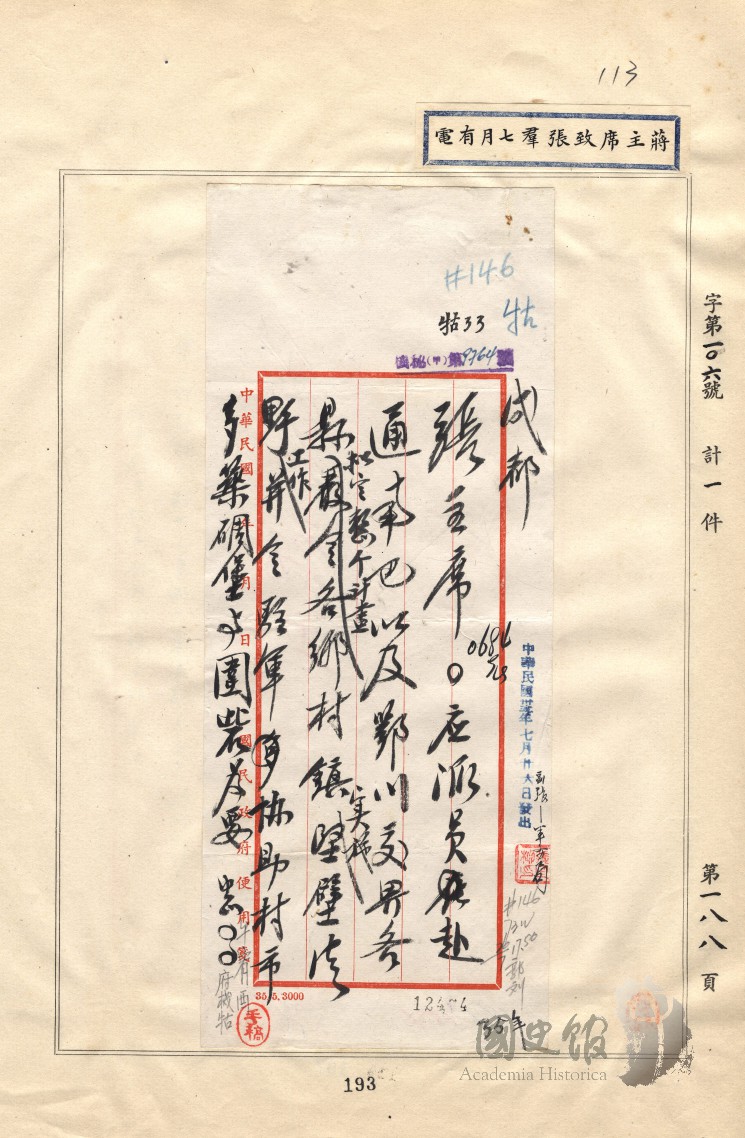 113
蔣主席致張羣七月有電
字第一〇六號 計一件
第一八八頁
#146
牯33 牯
機秘(甲)第9764號
成都
張主席〇應派員赴
通南巴以及鄂川交界各
縣擬定整个計畫
令各鄉村鎮實施堅壁清
野工作並令駐軍多協助村市
多築碉堡與圍砦為要 中〇〇
府機牯
0686
中華民國卅五年七月廿六日發出
#146
17.50
中華民國 年 月 日 國民政府便用箋
35.5.3000
手稿
35年
國史館
Academia Historica
193